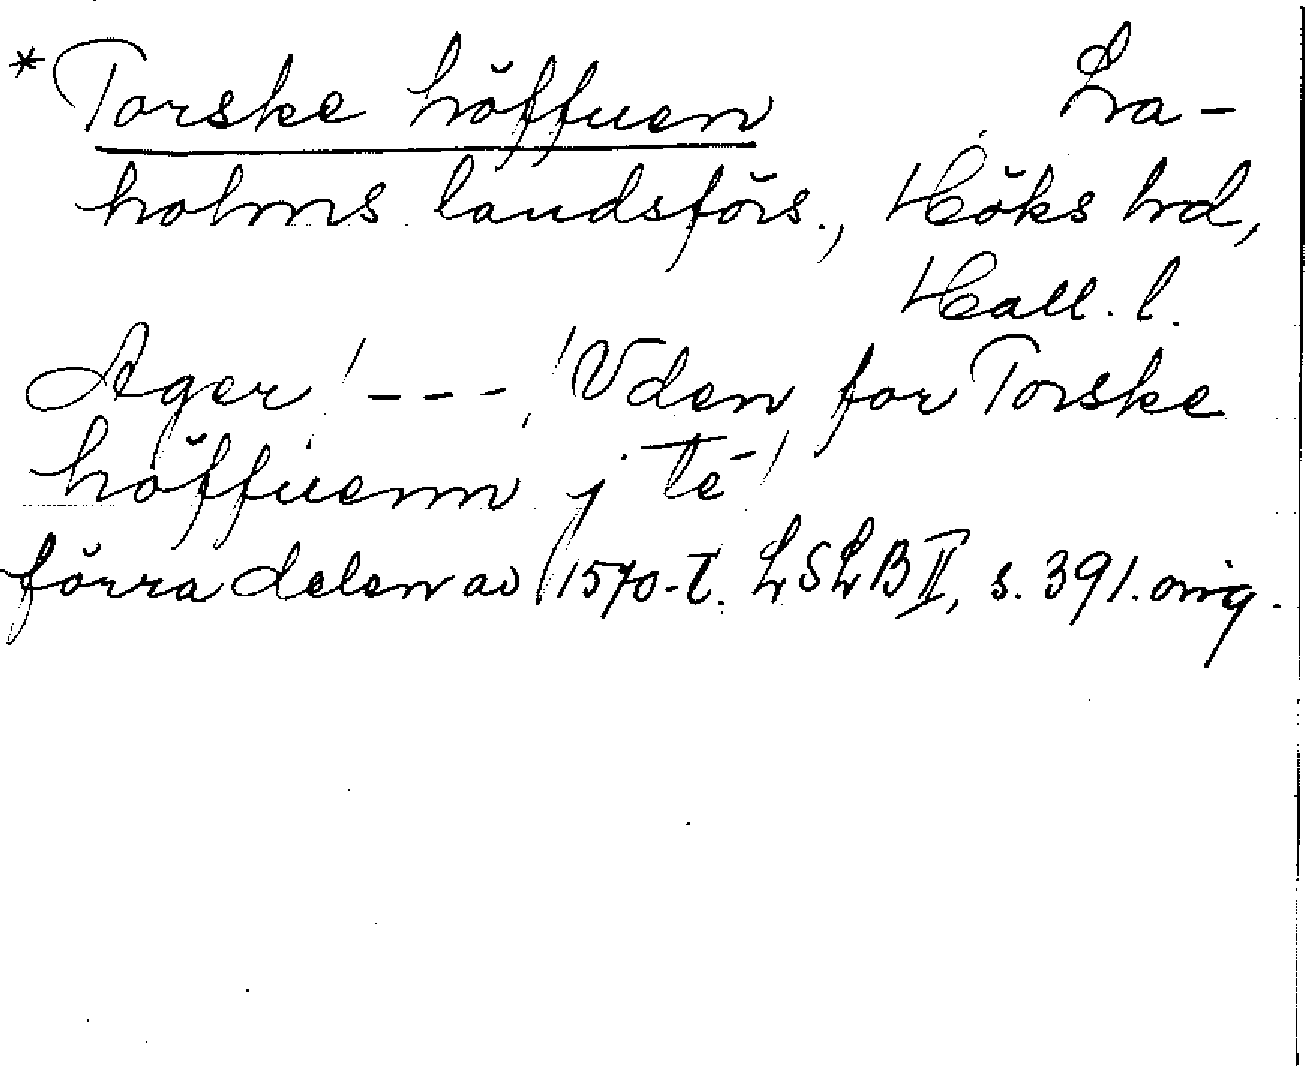 *Torske höffuen La-
holms landsförs., Höks hd,
Hall. l.
Ager / - - - / Vden for Torske
höffuenn j té /
förra delen av 1570-t. LSLB II, s. 391. orig.